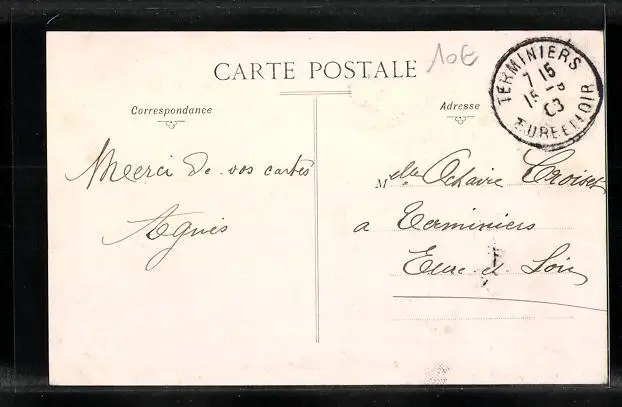 10€
CARTE POSTALE
TERMINIERS
7 15
15 -8
03
EURE ET LOIR
Correspondance
Adresse
Merci de vos cartes
Agnès
Melle Octavie Croiset
a Terminiers
Eure-et-Loir